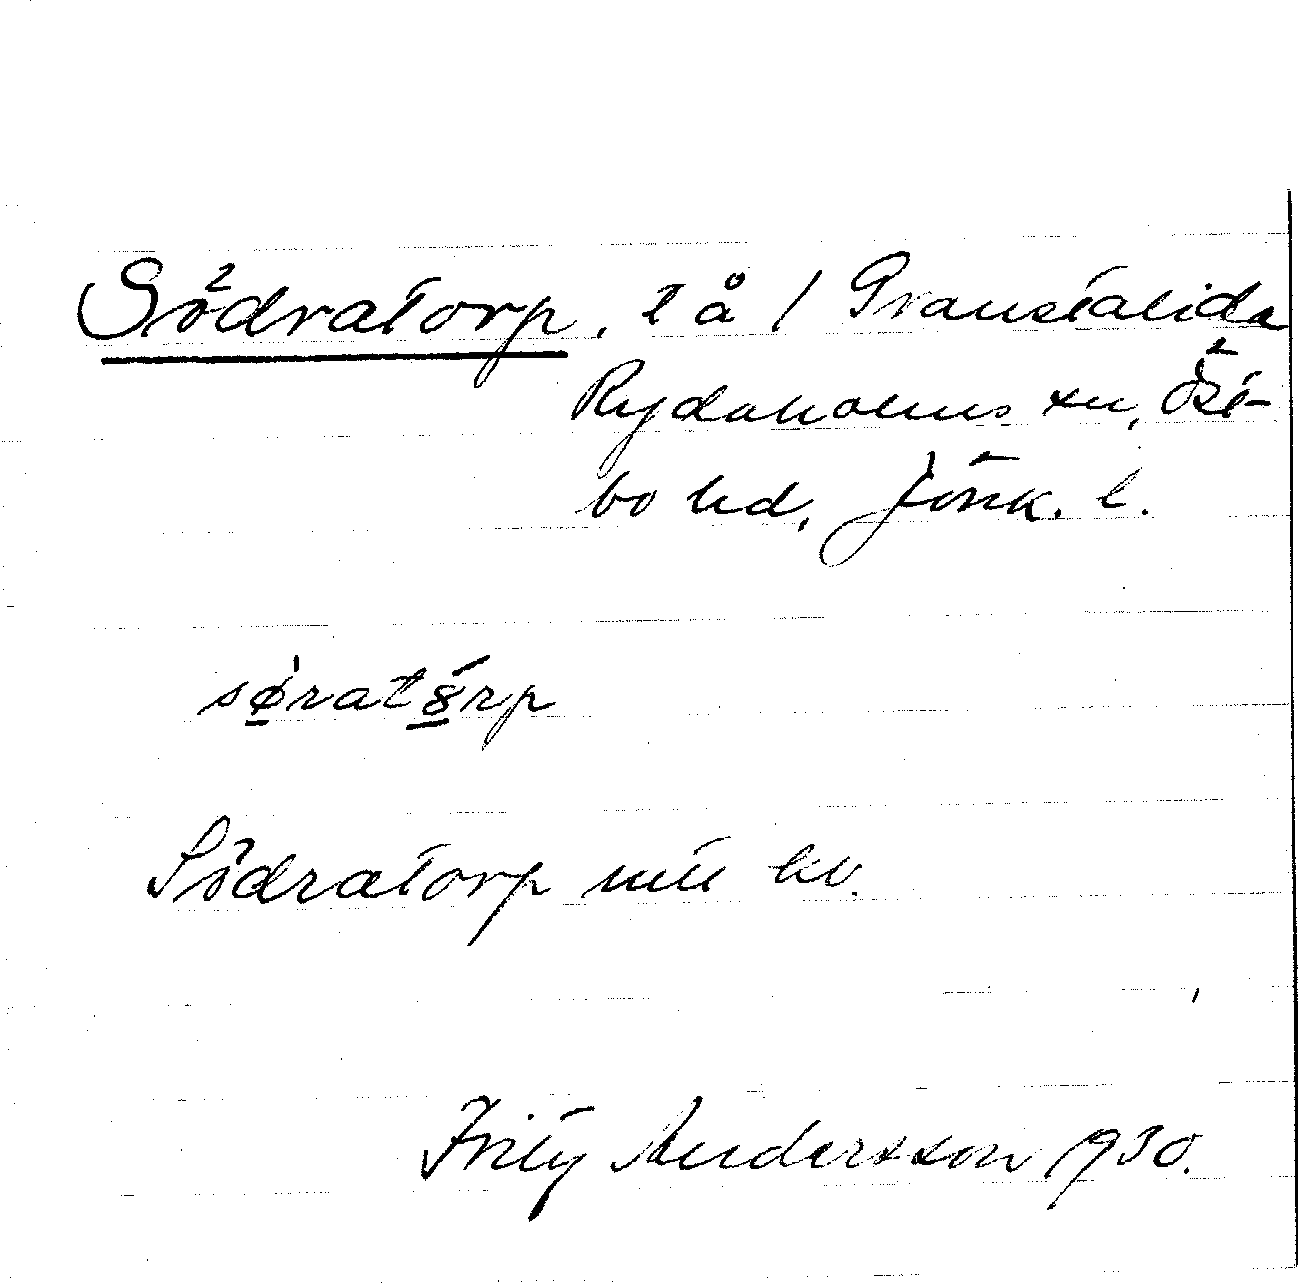 Södratorp, t å / Granstalida
Rydaholms sn, Öst-
bo hd, Jönk. l.
søratȣrp
Södratorp mtu ku.
Frity Andersson 1930.